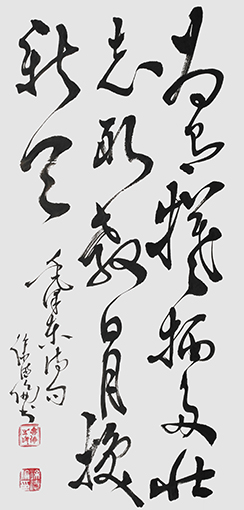 为有牺牲多壮
志敢教日月换
新天
毛泽东诗句